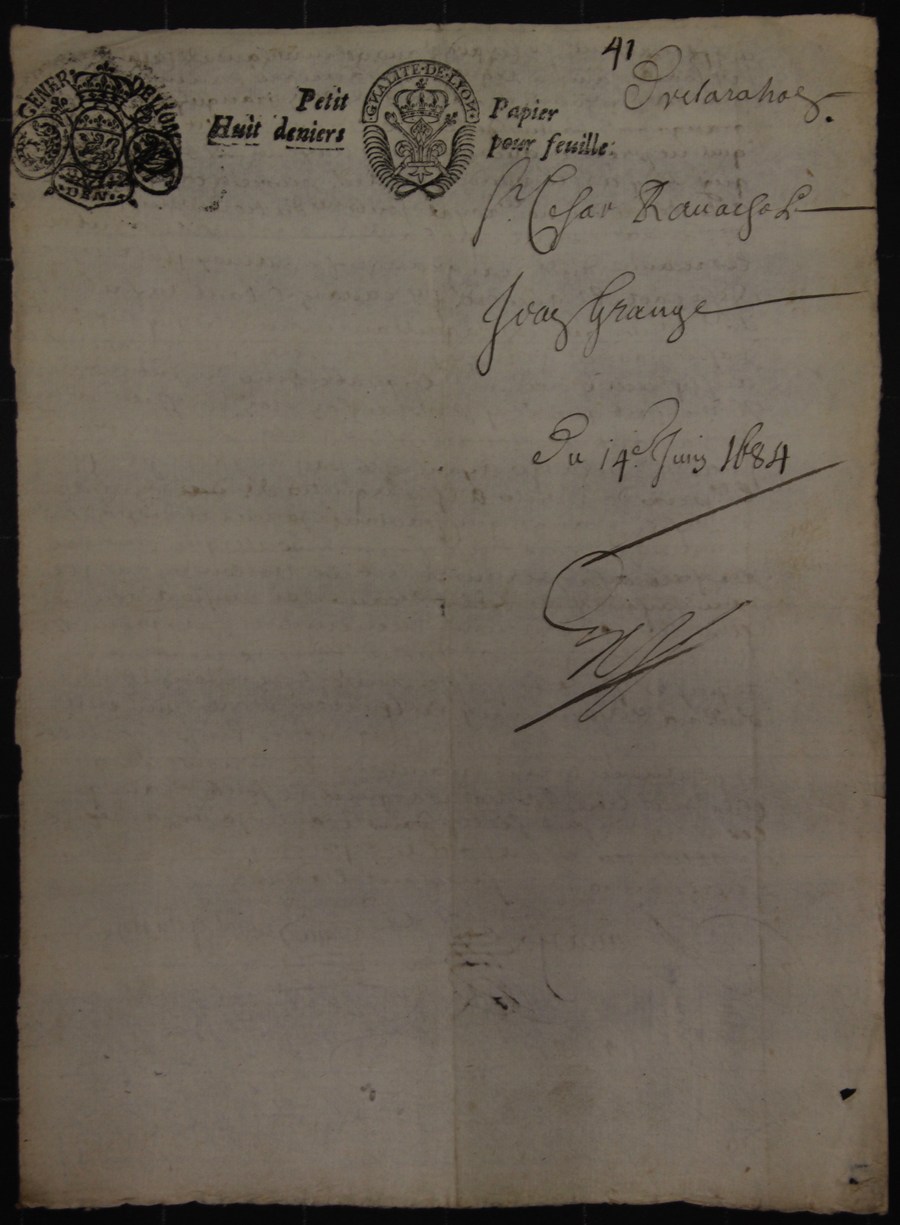 41
Declaration
GENER. DE LION
Petit Papier
GNALITE·DE·LYON
Huit deniers pour feuille:
Sr. Cesar Rauachol
Jean Grange
Du 14e Juin 1684